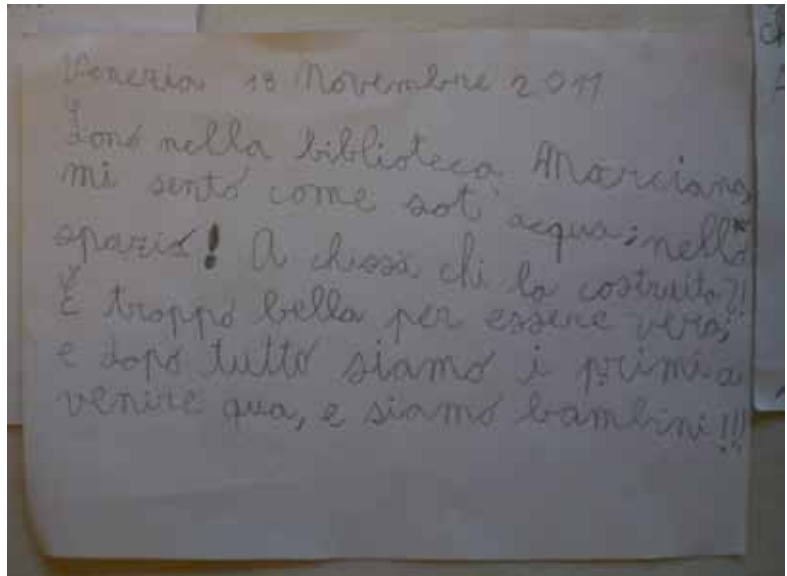 Venezia 18 Novembre 2011
Sono nella biblioteca Marciana,
mi sento come sot'acqua; nello
spazio! A chissà chi la costruita?!
È troppo bella per essere vera,
e dopo tutto siamo i primi a
venire qua, e siamo bambini!!!